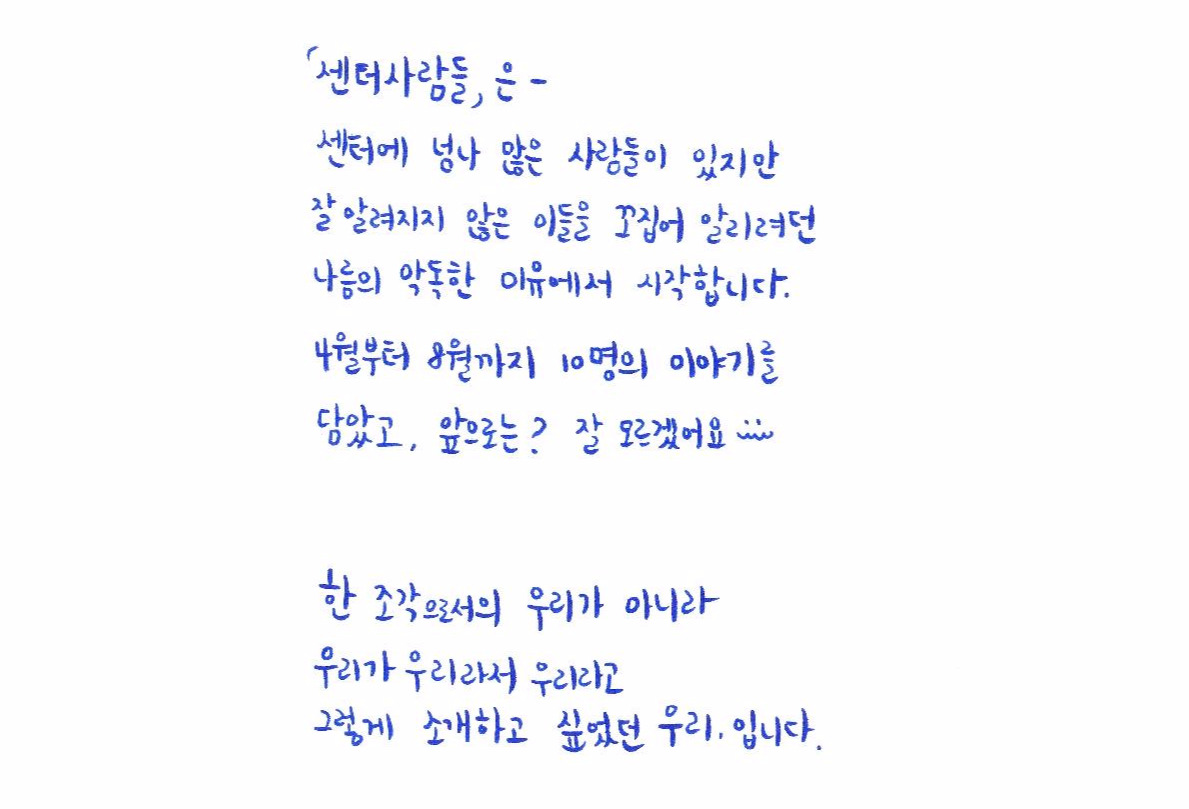 「센터사람들」은 -
센터에 넘나 많은 사람들이 있지만
잘 알려지지 않은 이들을 꼬집어 알리려던
나름의 악독한 이유에서 시작합니다.
4월부터 8월까지 10명의 이야기를
담았고, 앞으로는? 잘 모르겠어요 ㅠㅠ
한 조각으로서의 우리가 아니라
우리가 우리라서 우리라고
그렇게 소개하고 싶었던 우리, 입니다.